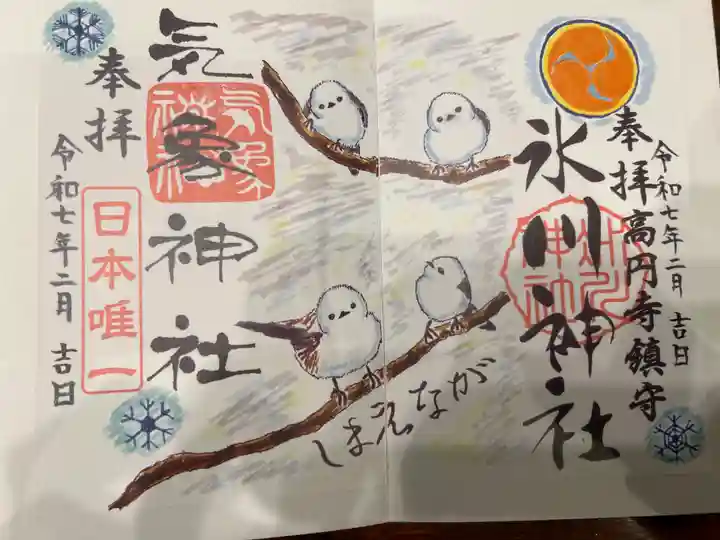 奉拝
高円寺鎮守
令和七年二月 吉日
氷川神社
しまえなが
気象神社
日本唯一
奉拝
令和七年二月 吉日